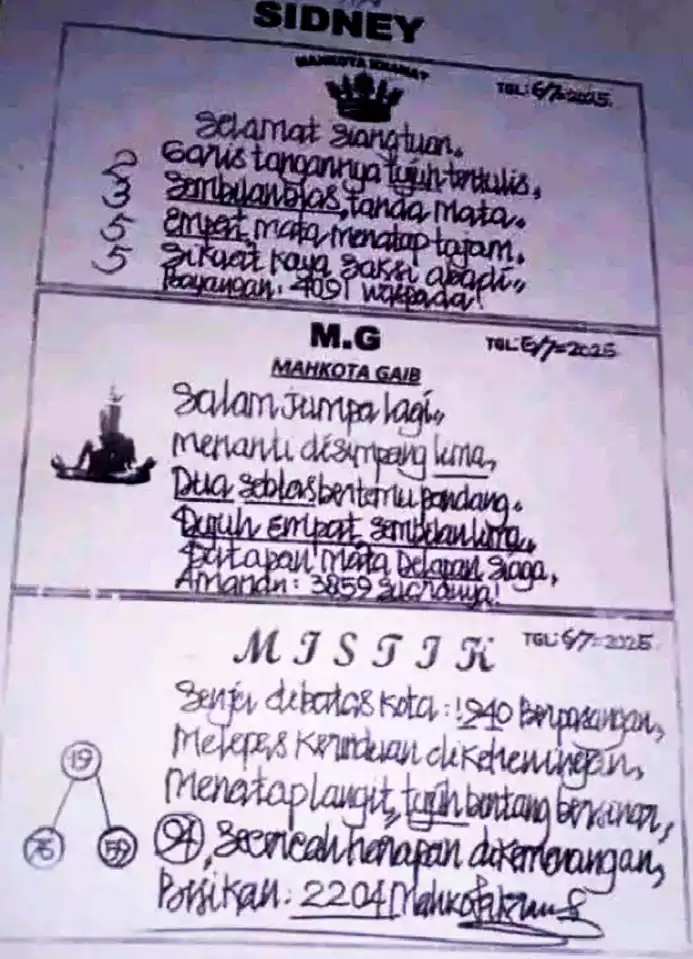 SIDNEY
MAHKOTA KRAMAT
TGL: 6/7=2025
Selamat siang tuan.
Garis tangannya tujuh tertulis,
2
Sembilan blas, tanda mata.
3
Empat, mata menatap tajam.
5
Sikuat kaya saksi abadi,,
5
Bayangan: 4091 waspada!
M.G
TGL: 6/7=2025
MAHKOTA GAIB
Salam jumpa lagi,,
Menanti disimpang lima,
Dua seblas bertemu pandang.
Tujuh Empat sembilan lima,
Tatapan mata Delapan siaga,
Amanan: 3859
MISTIK
TGL: 6/7=2025
Senja dibatas kota: 1940 Berpasangan,
Melepas kerinduan dikeheningan,
Menatap langit, tujuh bintang bersinar,
19
76
59
94, Secercah harapan dikemenangan,
Bisikan: 2204 Mahkota